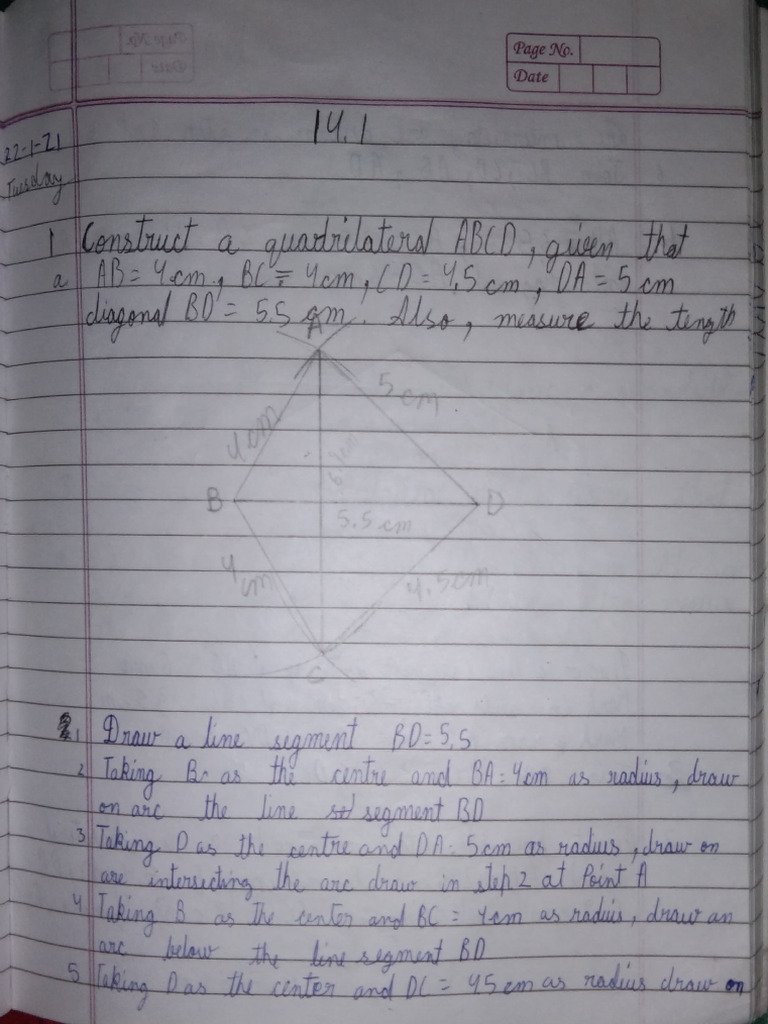 Page No.
Date
14.1
22-1-21
Tuesday
1 Construct a quadrilateral ABCD, given that
a AB = 4cm, BC = 4cm, CD = 4.5 cm, DA = 5 cm
diagonal BD = 5.5 cm. Also, measure the tength
A
5 cm
4 cm
B
D
5.5 cm
4 cm
4.5cm
C
1 Draw a line segment BD = 5.5
2 Taking B as the centre and BA = 4cm as radius, draw
on arc the line segment BD
3 Taking D as the centre and DA = 5cm as radius, draw on
are intersecting the arc draw in step 2 at Point A
4 Taking B as the center and BC = 4cm as radius, draw an
arc below the line segment BD
5 Taking D as the center and DC = 45cm as radius draw on